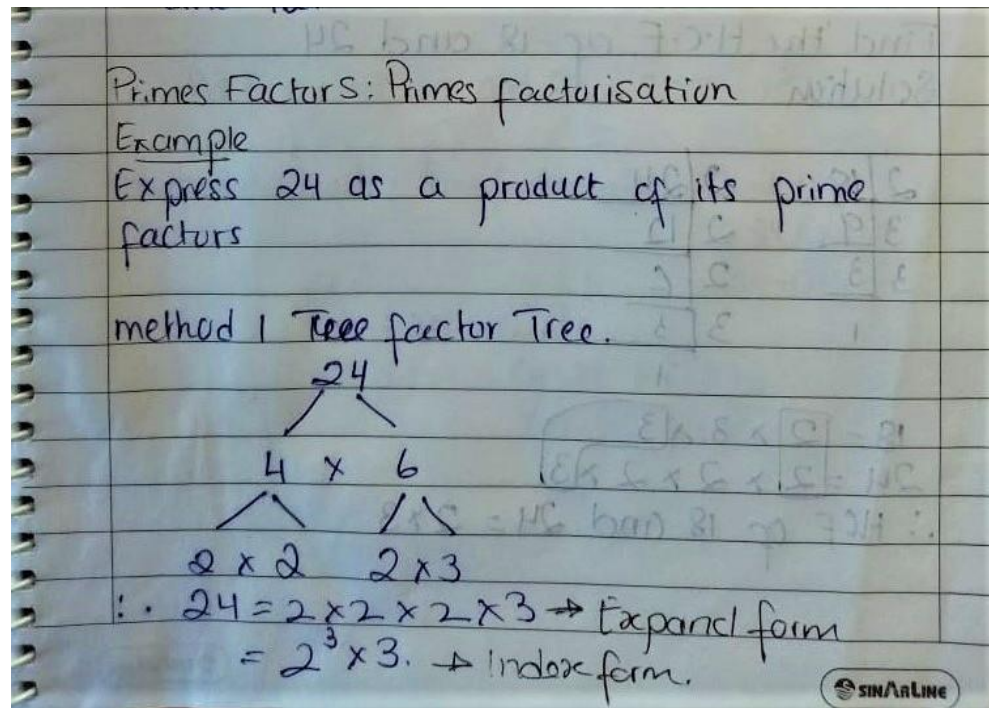 Primes Factors: Primes factorisation
Example
Express 24 as a product of its prime
factors
method 1 Tree factor Tree.
24
4 × 6
2 × 2 2 × 3
∴ 24 = 2 × 2 × 2 × 3 → Expand form
= 2³ × 3. → Index form.
SINARLINE